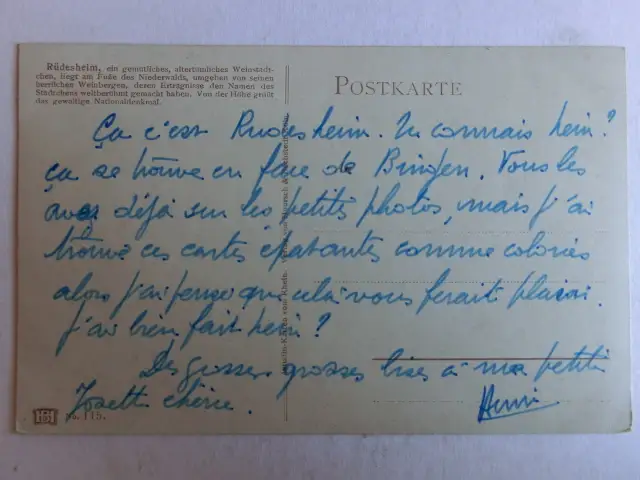 Rüdesheim, ein gemütliches, altertümliches Weinstädt-
chen, liegt am Fuße des Niederwalds, umgeben von seinen
herrlichen Weinbergen, deren Erträgnisse den Namen des
Städtchens weltberühmt gemacht haben. Von der Höhe grüßt
das gewaltige Nationaldenkmal.
POSTKARTE
Ça c'est Rudesheim. Tu connais hein?
ça se trouve en face de Bingen. Vous les
avez déjà sur les petits photos, mais j'ai
trouvé ces cartes épatantes comme coloris
alors j'ai pensé que celà vous ferait plaisir.
J'ai bien fait hein?
Des grosses grosses bises à ma petite
Josette chérie.
Henri
No. 115.